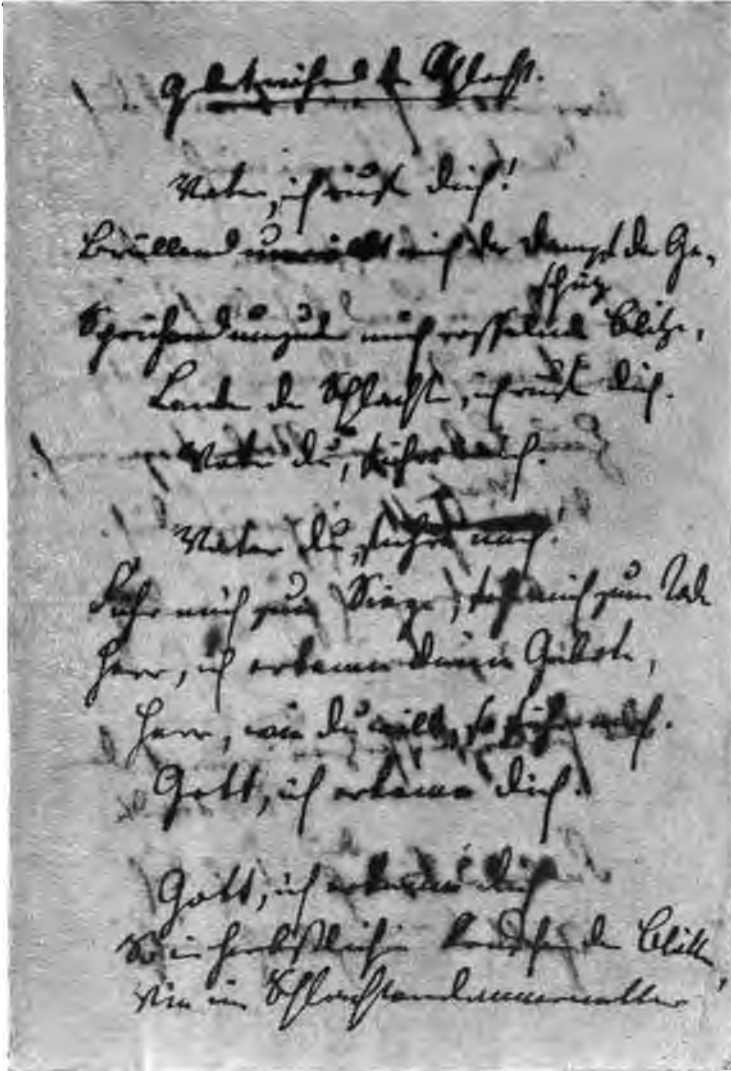 Gebet während der Schlacht.
Vater, ich rufe dich!
Brüllend umwölkt mich der Dampf der Ge-
schütz
Sprühend umzucken mich rasselnde Blitze,
Lenker der Schlachten, ich rufe dich.
Vater du, führe mich.
Vater du, führe mich!
Führ mich zum Siege, führ mich zum Tode
Herr, ich erkenne deine Gebote,
Herr, wie du willst, so führe mich.
Gott, ich erkenne dich.
Gott, ich erkenne dich
So im herbstlichen Rauschen der Blätter,
Wie im Schlachtendonnerwetter